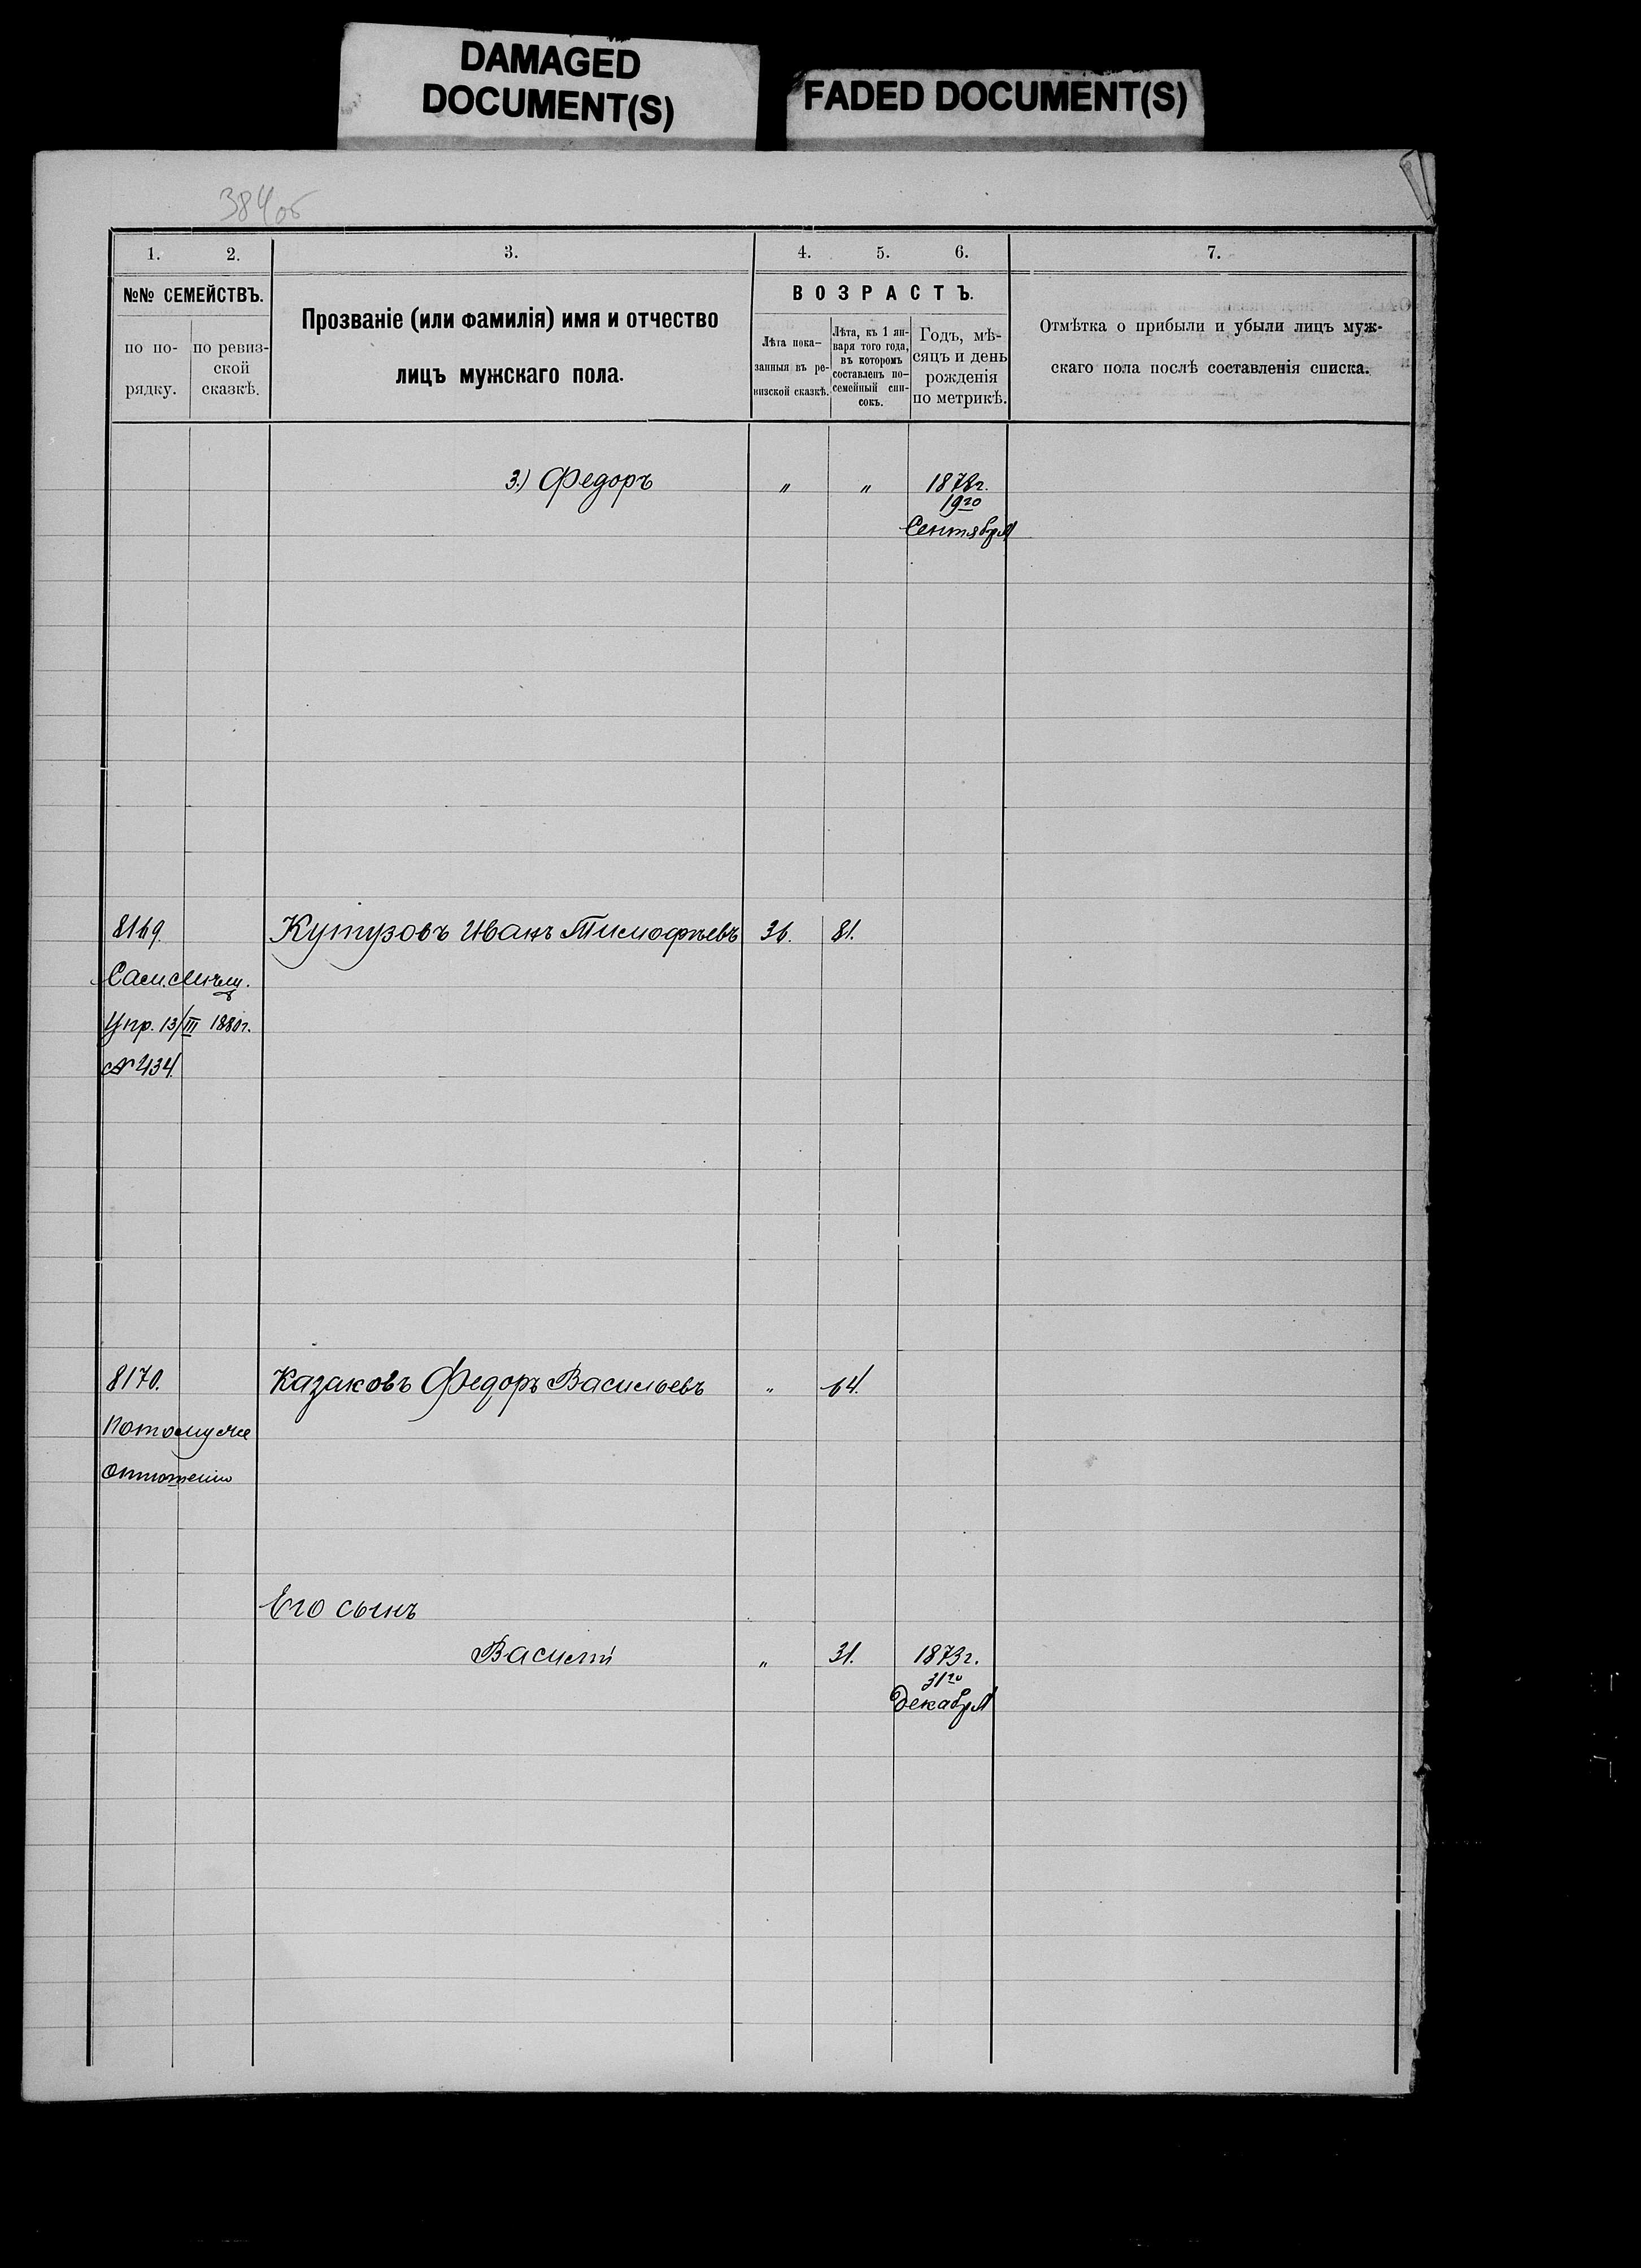 DAMAGED
DOCUMENT(S)
FADED DOCUMENT(S)
384об
1. 2. 3. 4. 5. 6. 7.
№№ СЕМЕЙСТВЪ.
по по-
рядку.
по ревиз-
ской
сказкѣ.
Прозваніе (или фамилія) имя и отчество
лицъ мужскаго пола.
ВОЗРАСТЪ.
Лѣта пока-
занныя въ ре-
визской сказкѣ.
Лѣта, къ 1 ян-
варя того года,
въ которомъ
составленъ по-
семейный спи-
сокъ.
Годъ, мѣ-
сяцъ и день
рожденія
по метрикѣ.
Отмѣтка о прибыли и убыли лицъ муж-
скаго пола послѣ составленія списка.
3.) Федоръ " " 1878г.
19го
Сентября
8169. Кутузовъ Иванъ Тимофѣевъ 36. 81.
Сам. Мѣщ.
Упр. 13/III 1880г.
№ 434.
8170. Казаковъ Федоръ Васильевъ " 64.
Потому же
отношенію
Его сынъ
Василій " 31. 1873г.
31го
Декабря